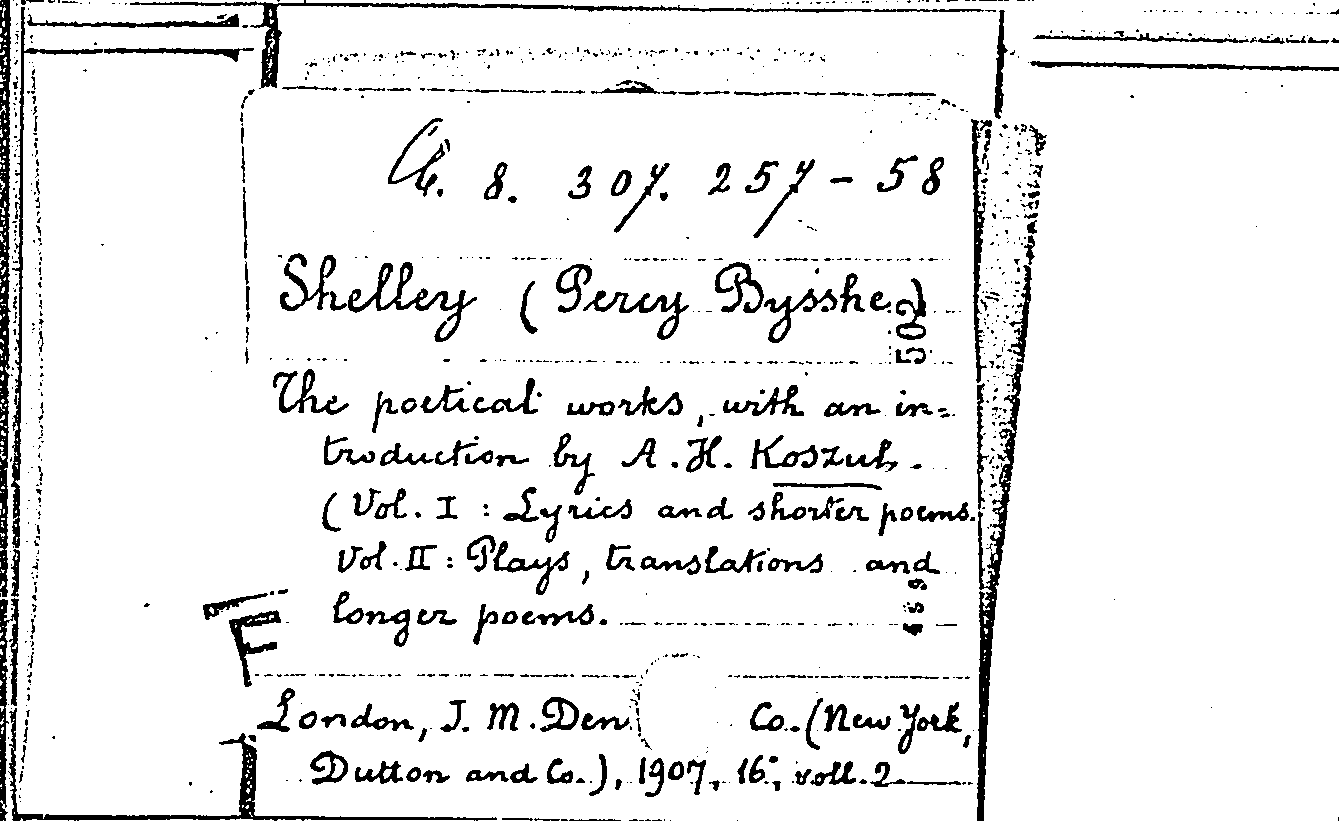 8. 307. 257 - 58
Shelley (Percy Bysshe)
502
The poetical works, with an in=
troduction by A. H. Koszul.
(Vol. I : Lyrics and shorter poems.
Vol. II : Plays, translations and
longer poems.
London, J. M. Den Co. (New York,
Dutton and Co.), 1907, 16°, voll. 2